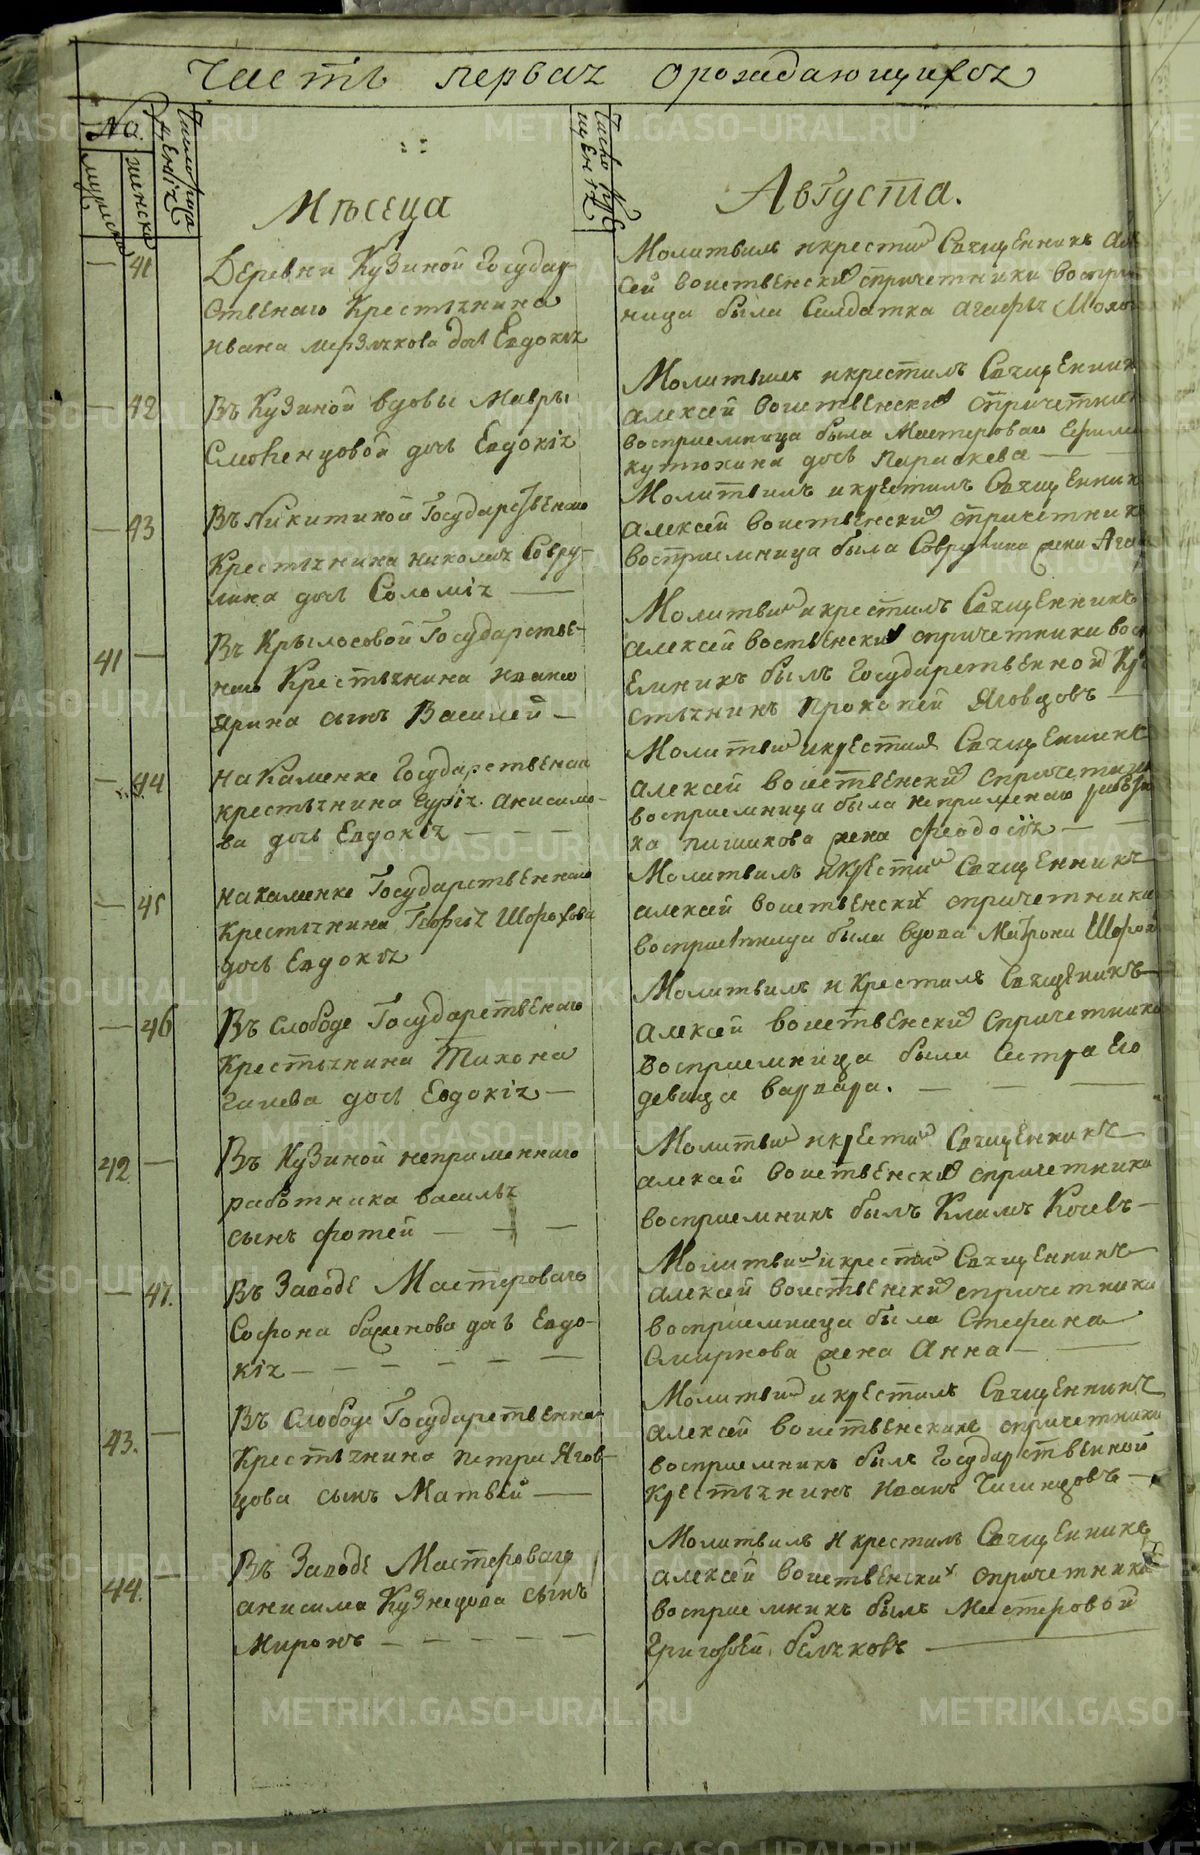 Часть первая о рождающихся
No.
мужеска
женска
Число рожденія
Число крещенія
Мѣсеца
Августа.
— 41
Деревни Кузиной Государ-
ственаго Крестьянина
Ивана Мерзлякова дочь Евдокія
Молитвилъ и крестилъ Священникъ Але
сей Воиственски спричетники Воспри
ница была Салдатка Агафья
— 42
Въ Кузиной вдовы Мавры
дочь Евдокія
Молитвилъ и крестилъ Священник
Алексей Воиственский спричетник
восприемница была Мастероваго Ефима
Кутюхина дочь Параскева —
— 43
Въ Никитиной Государственаго
Крестьянина Николая Совру-
лина дочь Соломія —
Молитвилъ и крестилъ Священник
Алексей Воиственский спричетник
восприемница была жена Ага
41 —
Въ Крылосовой Государстве-
наго Крестьянина Ивана
Ярина сынъ Василей —
Молитвилъ и крестилъ Священникъ
Алексей Воственский спричетники вос
емникъ былъ Государственной Кре
стьянинъ Прокопей Яговцовъ —
— 44
На Каменке Государственаго
крестьянина Гурія Анисимо-
ва дочь Евдокія — — —
Молитвилъ и крестилъ Священникъ
Алексей Воиственский спричетники
восприемница была непременаго работни
ка Пишикова жена Феодосія —
— 45
На Каменке Государственнаго
крестьянина Георгія Шорохова
дочь Евдокія
Молитвилъ и крестилъ Священникъ
Алексей Воиственский спричетники
восприемница была вдова Матрона Шорох
— 46
Въ Слободе Государственаго
Крестьянина Тихона
Галева дочь Евдокія —
Молитвилъ и крестилъ Священикъ —
Алексей Воиственский спричетники
восприемница была Сестра Его
девица Варвара. — — —
42 —
Въ Кузиной непременнаго
работника Василья
сынъ Фотей — — —
Молитвилъ и крестилъ Священникъ
Алексей Воиственский спричетники
восприемникъ былъ Климъ Кочевъ —
— 47.
Въ Заводе Мастероваго
Софона Баженова дочь Евдо-
кія — — — — — —
Молитвилъ и крестилъ Священникъ
Алексей Воиственский спричетники
восприемница была Стефана
Смирнова жена Анна —
43. —
Въ Слободе Государственнаго
Крестьянина Петра Ягов-
цова сынъ Матвей —
Молитвилъ и крестилъ Священникъ
Алексей Воиственский спричетники
восприемникъ былъ Государственной
Крестьянинъ Иванъ Чигинцовъ —
44. —
Въ Заводе Мастероваго
Анисима Кузнецова сынъ
Миронъ — — — — —
Молитвилъ и крестилъ Священникъ
Алексей Воиственский спричетники
восприемникъ былъ Мастеровой
Григорей Беляковъ —
METRIKI.GASO-URAL.RU